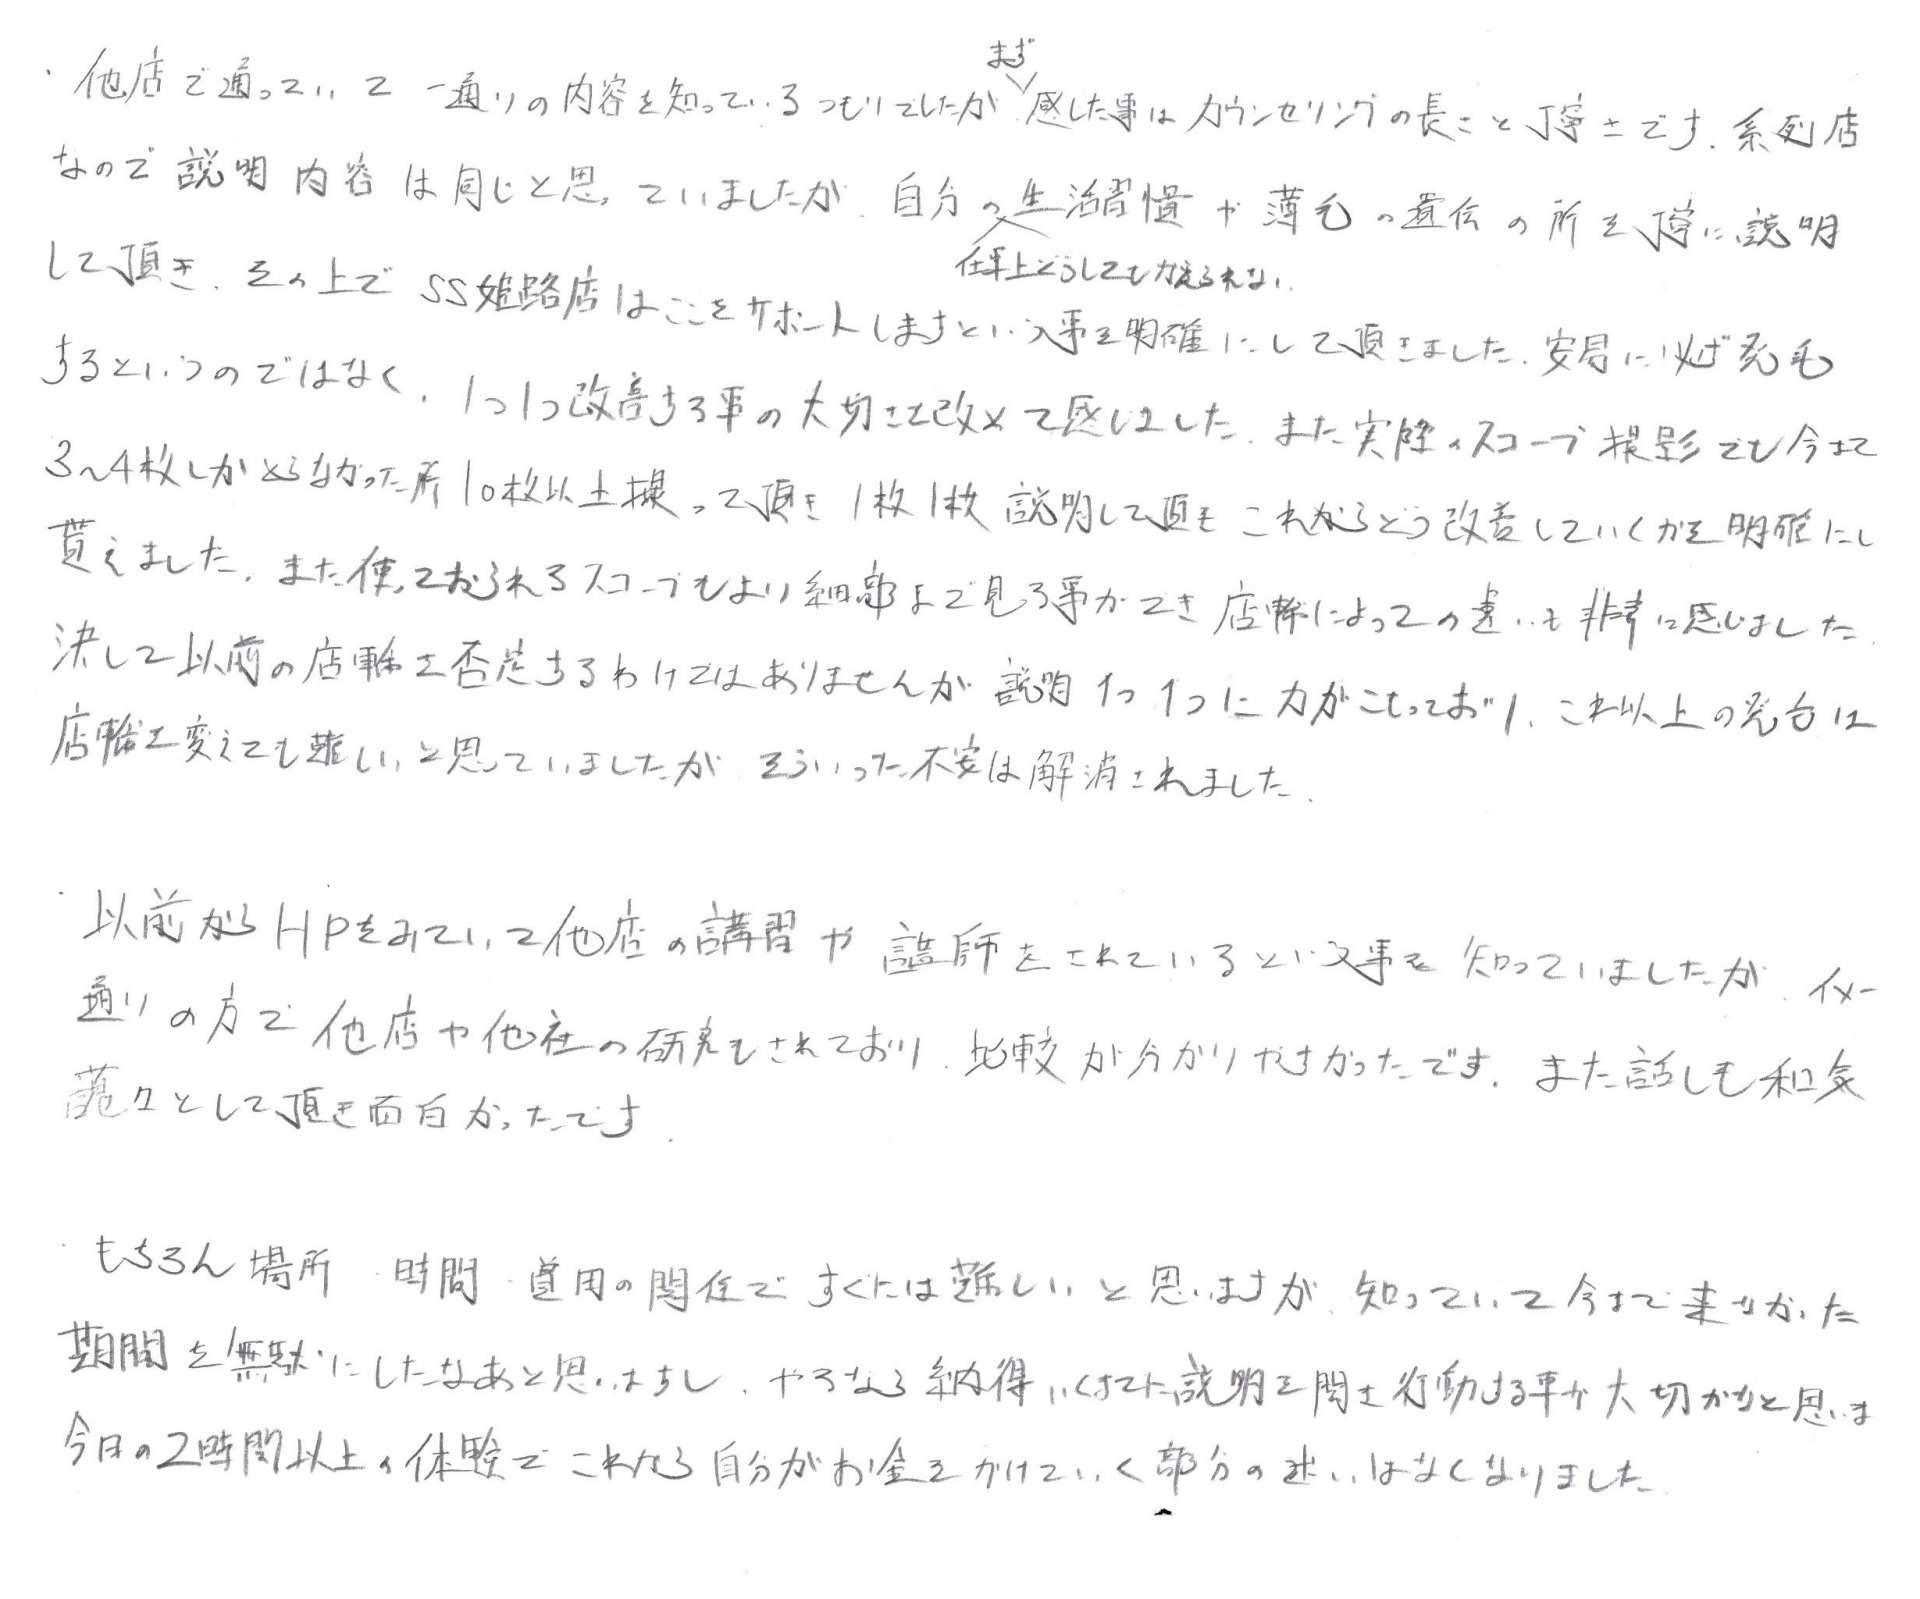 ・他店で通っていて一通りの内容を知っているつもりでしたが まず 感じた事はカウンセリングの長さと丁寧さです。系列店
なので説明内容は同じと思っていましたが、自分の 仕事上どうしても加えられない 生活習慣や薄毛の遺伝の所を丁寧に説明
して頂き、その上でSS姫路店はここをサポートしますという事を明確にして頂きました。安易に必ず発毛
するというのではなく、1つ1つ改善する事の大切さを改めて感じました。また実際のスコープ撮影でも今まで
3〜4枚しかとらなかった所10枚以上撮って頂き1枚1枚説明して頂きこれからどう改善していくかを明確にし
貰えました。また使っておられるスコープもより細部まで見る事ができ店舗によっての違いも非常に感じました。
決して以前の店舗を否定するわけではありませんが説明1つ1つに力がこもっており、これ以上の発毛は
店舗を変えても難しいと思っていましたがそういった不安は解消されました。
・以前からHPをみていて他店の講習や講師をされているという事を知っていましたが、イメー
通りの方で他店や他社の研究もされており、比較が分かりやすかったです。また話しも和気
藹々として頂き面白かったです。
・もちろん場所・時間・費用の関係ですぐには難しいと思いますが、知っていて今まで来なかった
期間を無駄にしたなあと思いますし、やるなら納得いくまでに説明を聞き行動する事が大切かなと思いま
今日の2時間以上の体験でこれから自分がお金をかけていく部分の迷いはなくなりました。